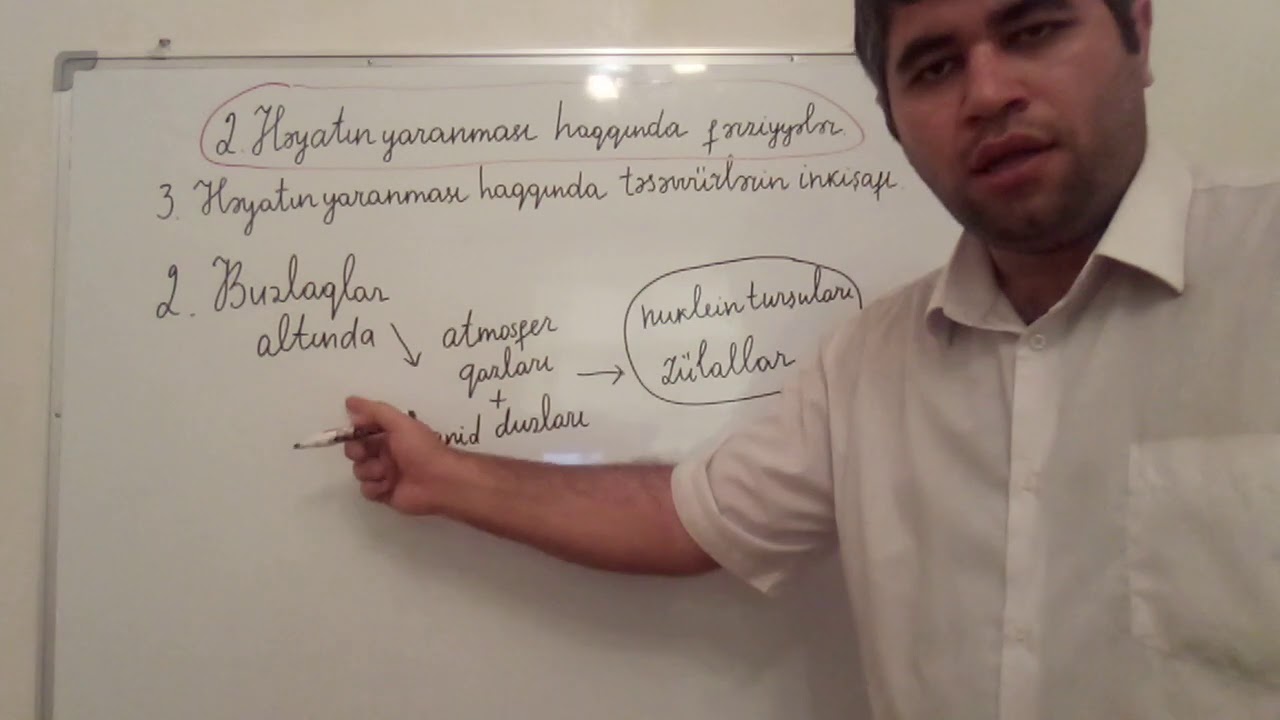 2. Həyatın yaranması haqqında fərziyyələr.
3. Həyatın yaranması haqqında təsəvvürlərin inkişafı.
2. Buzlaqlar
altında
atmosfer
qazları
+
duzları
→
nuklein turşuları
zülallar